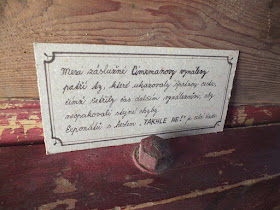 Mezi záslužné Cimrmanovy vynálezy
patří ty, které ukazovaly správnou cestu,
čímž šetřily čas dalším vynálezcům, aby
neopakovali stejné chyby.
Exponátů s textem „TAKHLE NE!" je celá řada.